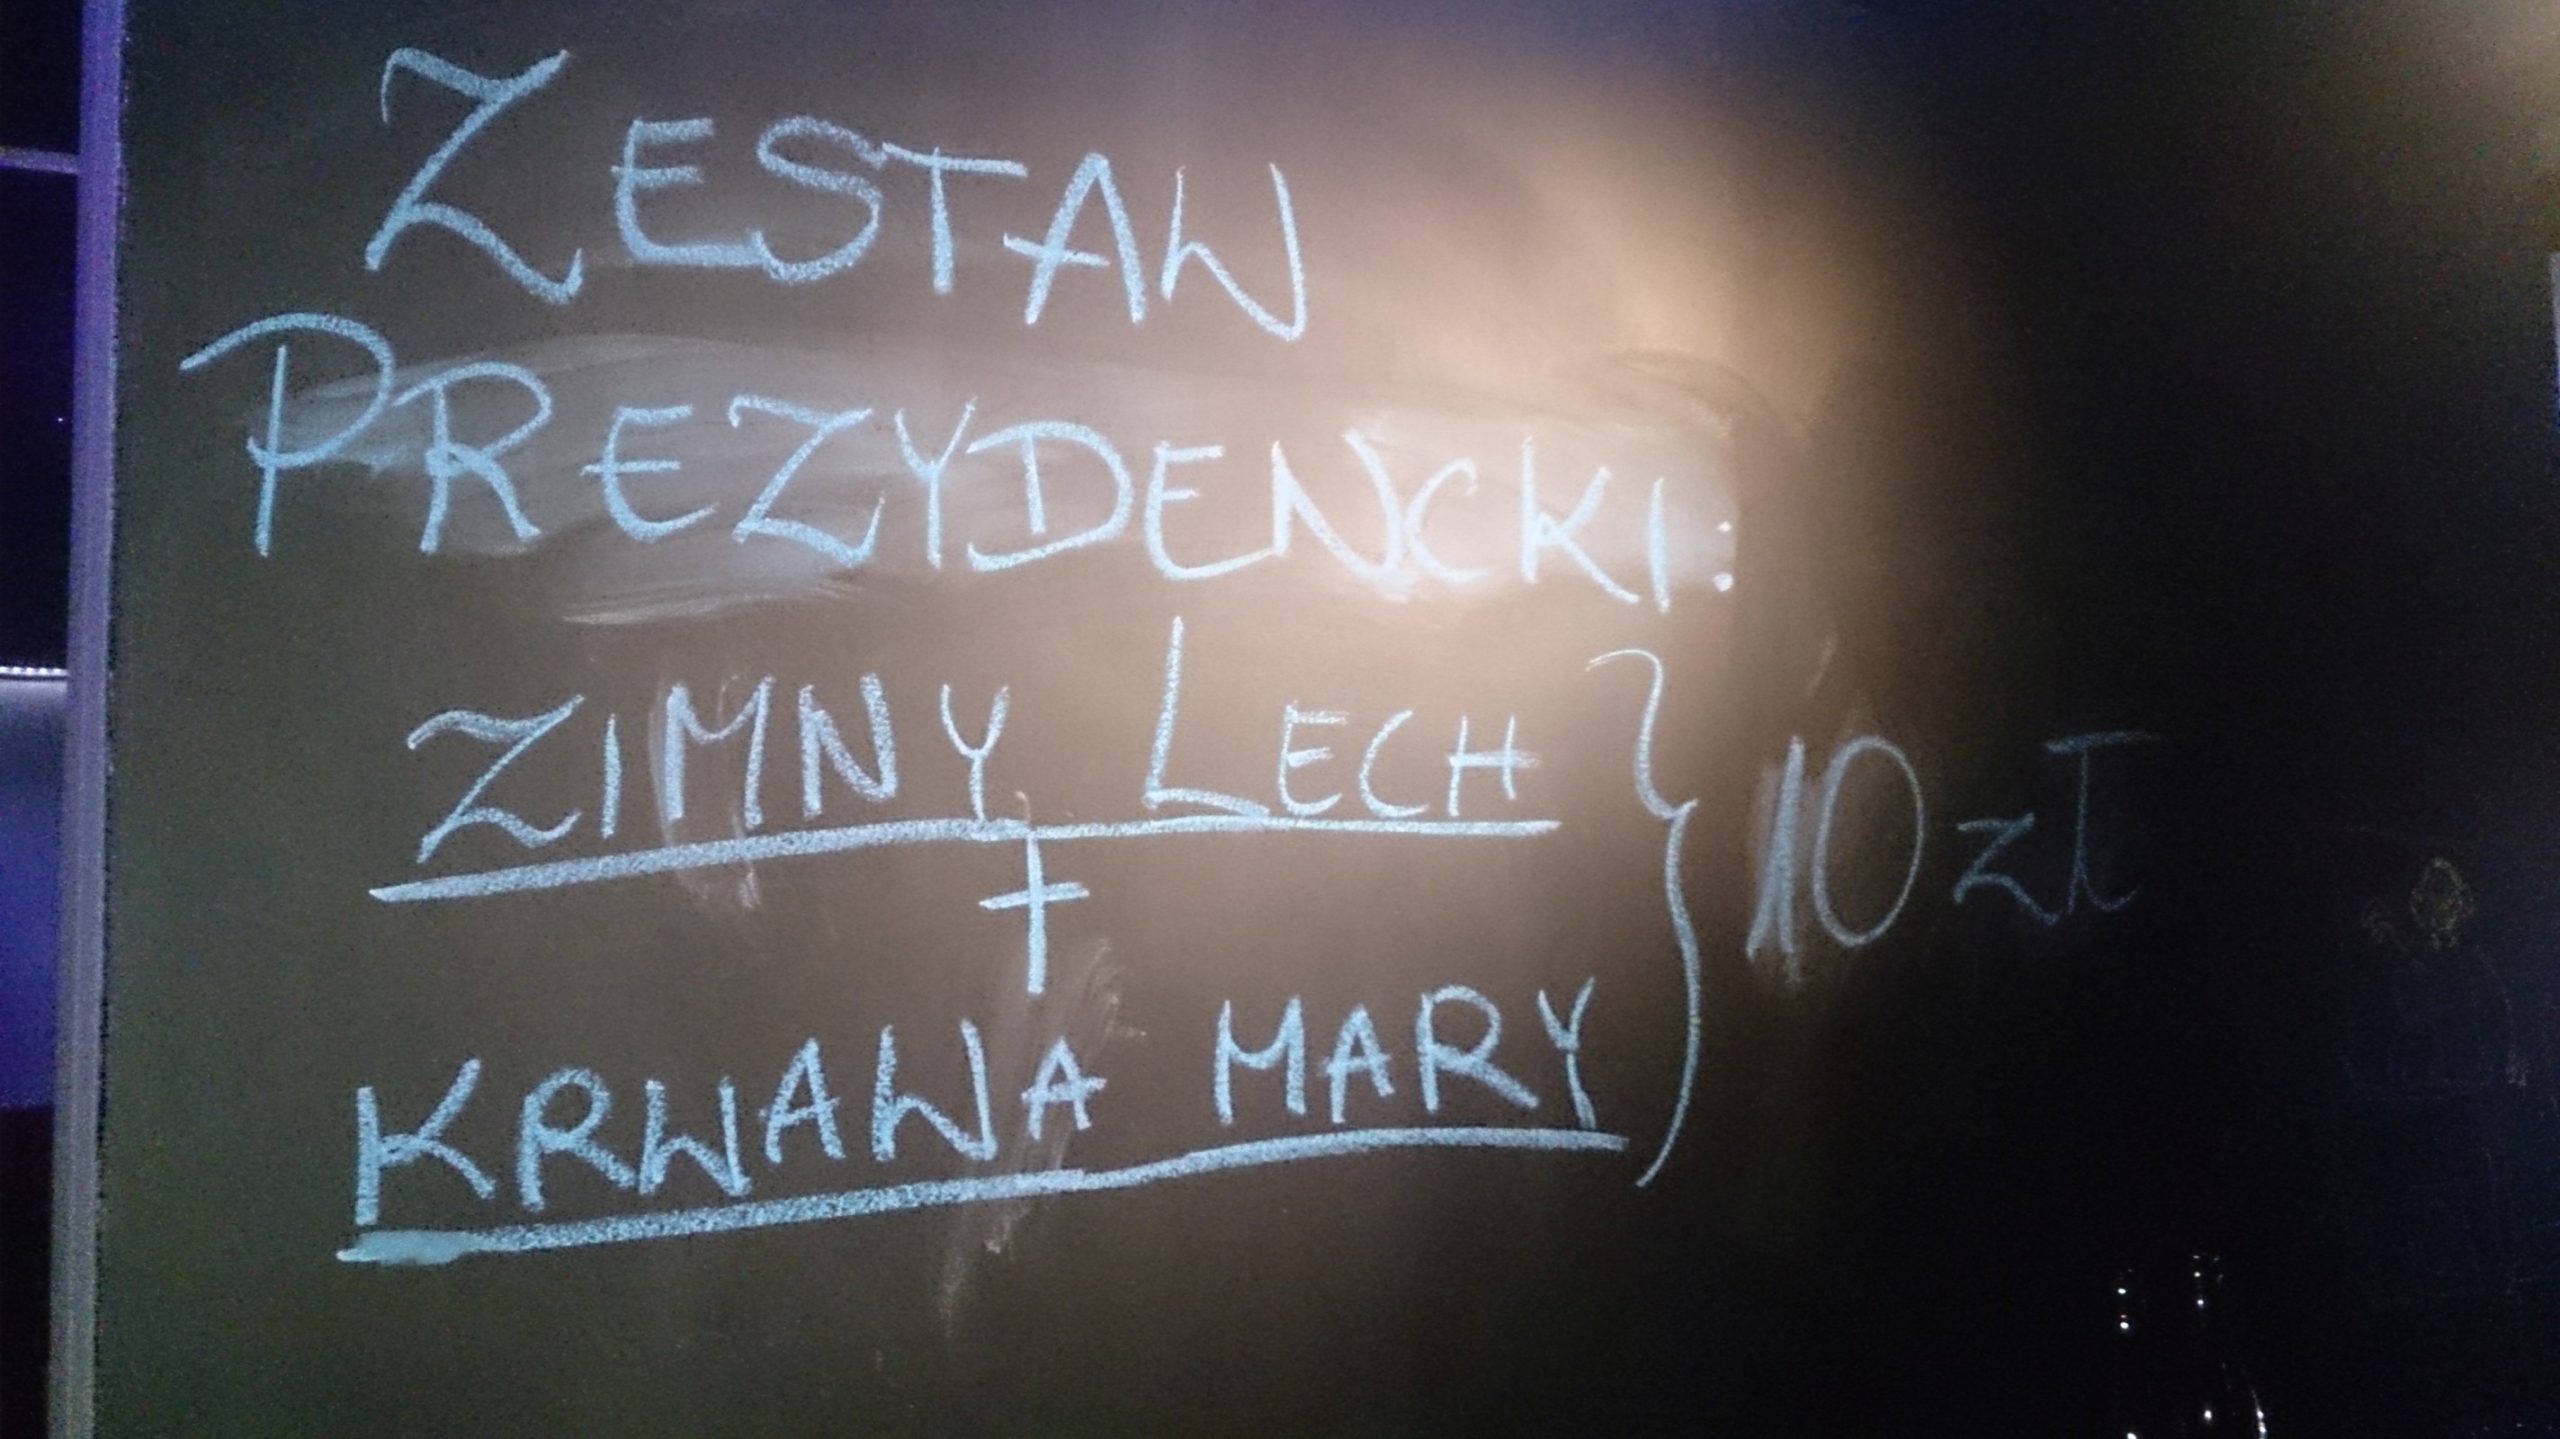 ZESTAW
PREZYDENCKI:
ZIMNY LECH
+
KRWAWA MARY
} 10 zł